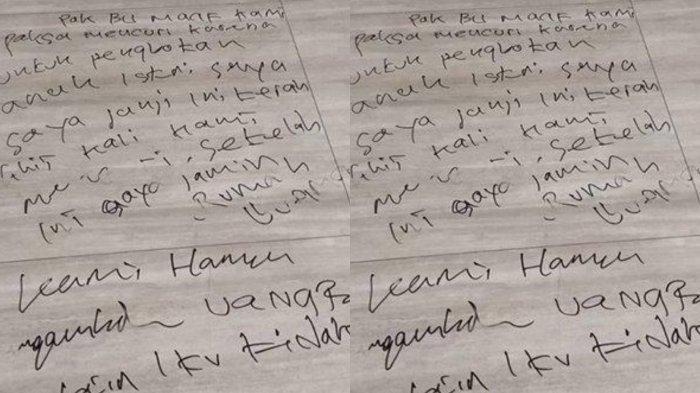 PAK BU MAAF KAMi
PAKSA MENCURi KARENA
UNTUK PENGOBATAN
ANAK ISTRi SAYA
SAYA JANJi INi TERAH
KALi KAMi
SETELAH
INi SAYA JAMiN
RUMAH
Kami HANYA
ngambil UANG
IKU TiDAK
PAK BU MAAF KAMi
PAKSA MENCURi KARENA
UNTUK PENGOBATAN
ANAK ISTRi SAYA
SAYA JANJi INi TERAH
KALi KAMi
SETELAH
INi SAYA JAMiN
RUMAH
Kami HANYA
ngambil UANG
IKU TiDAK